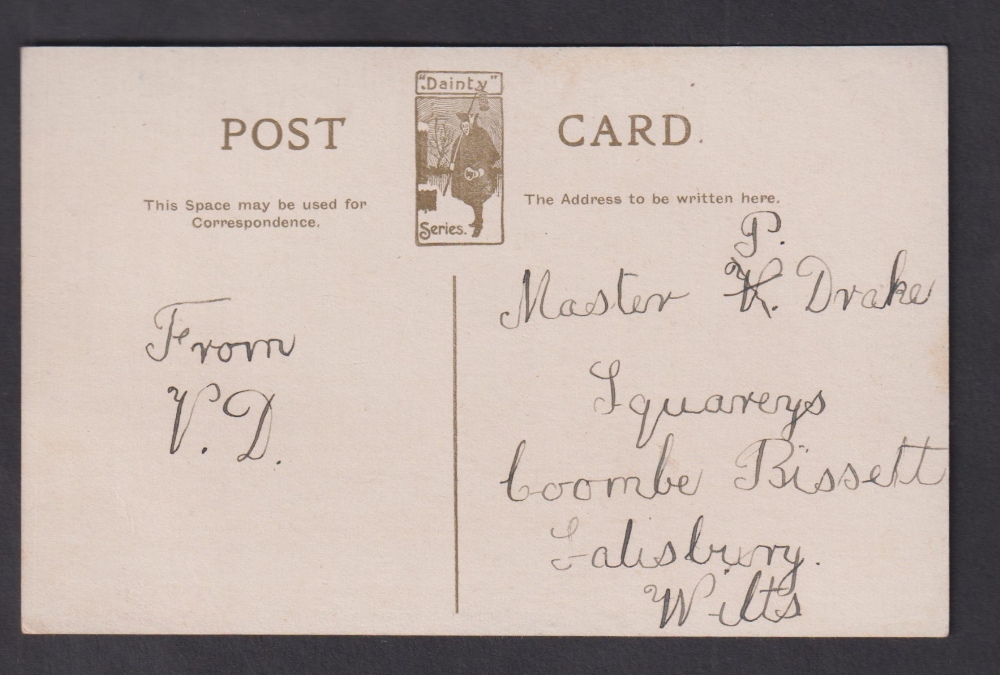 "Dainty"
Series.
POST CARD.
This Space may be used for
Correspondence.
The Address to be written here.
From
V. D.
P.
Master K. Drake
Squareys
Coombe Bissett
Salisbury.
Wilts